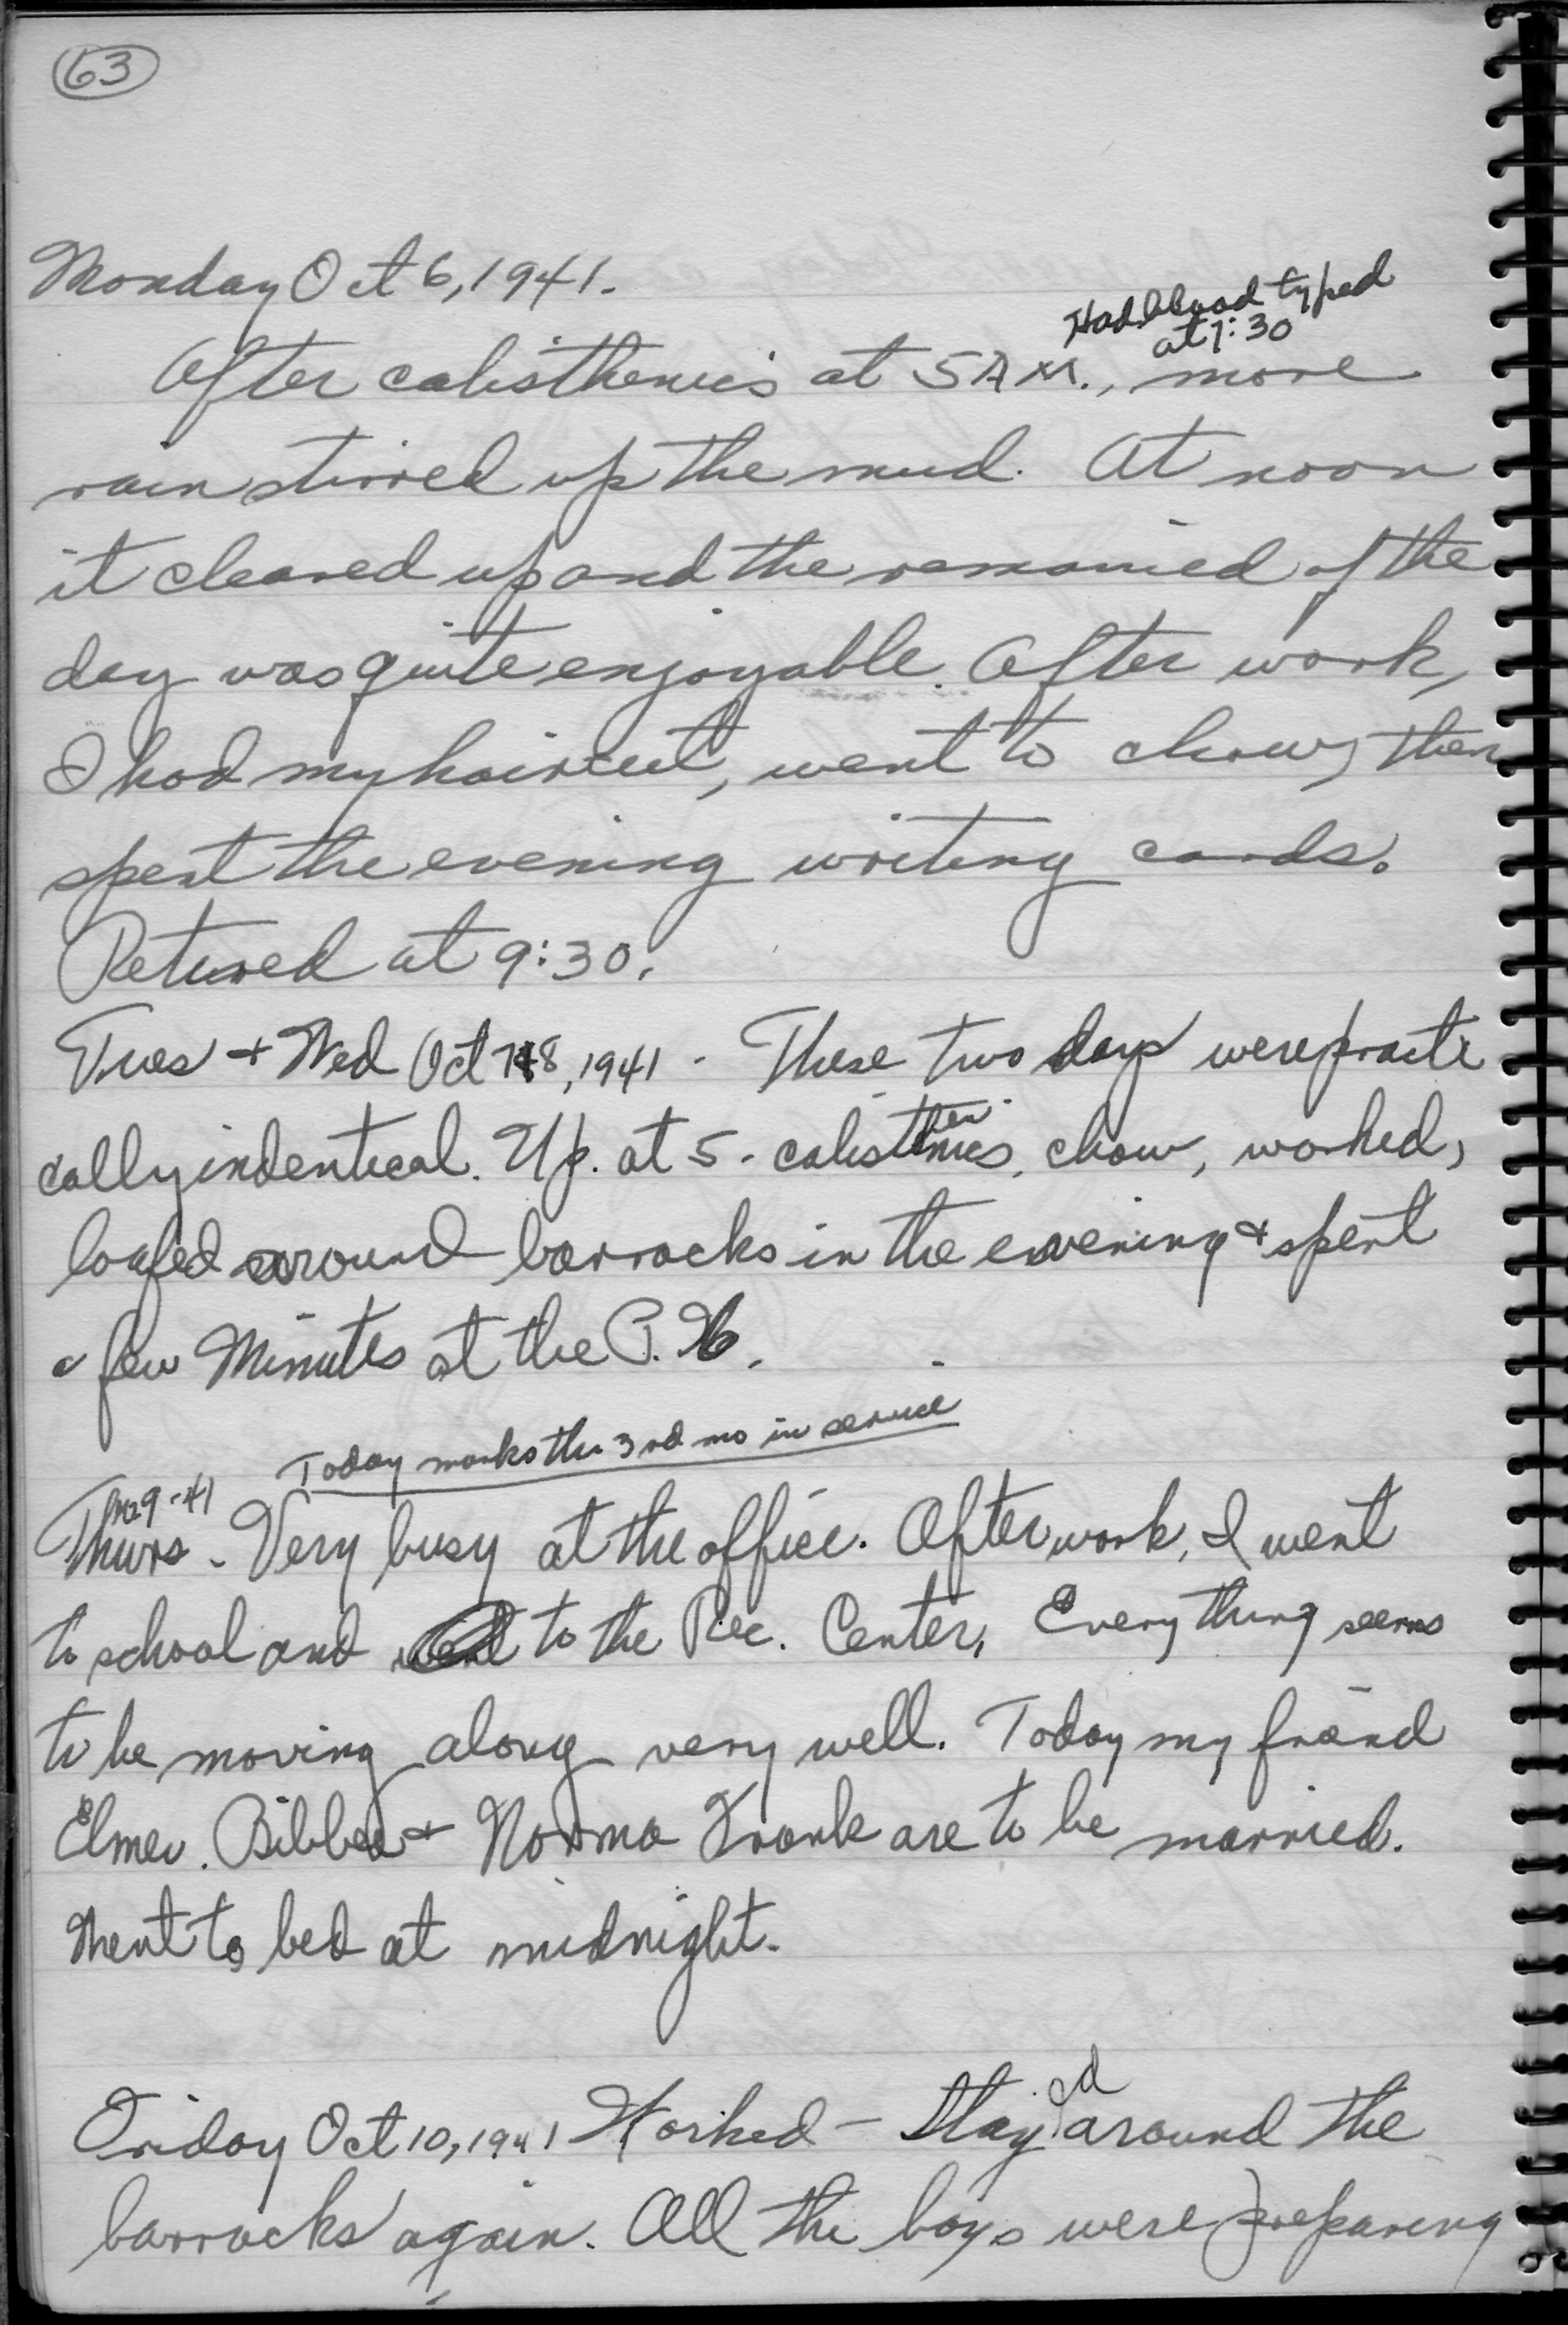 63
Monday Oct 6, 1941.
Had blood typed
at 7:30
After calisthenics at 5 A.M., more
rain stirred up the mud. At noon
it cleared up and the remained of the
day was quite enjoyable. After work,
I had my haircut, went to chow, then
spent the evening writing cards.
Retired at 9:30.
Tues + Wed Oct 7+8, 1941 - These two days were practi
cally indentical. Up. at 5 - calisthenics, chow, worked,
loafed around barracks in the evening + spent
a few minutes at the P.X.
Today marks the 3rd mo in service
Thurs - Very busy at the office. After work, I went
to school and to the Rec. Center. Everything seems
to be moving along very well. Today my friend
Elmer Bibbee + Norma Frank are to be married.
Went to bed at midnight.
Friday Oct 10, 1941 Worked - Stayed around the
barracks again. All the boys were preparing